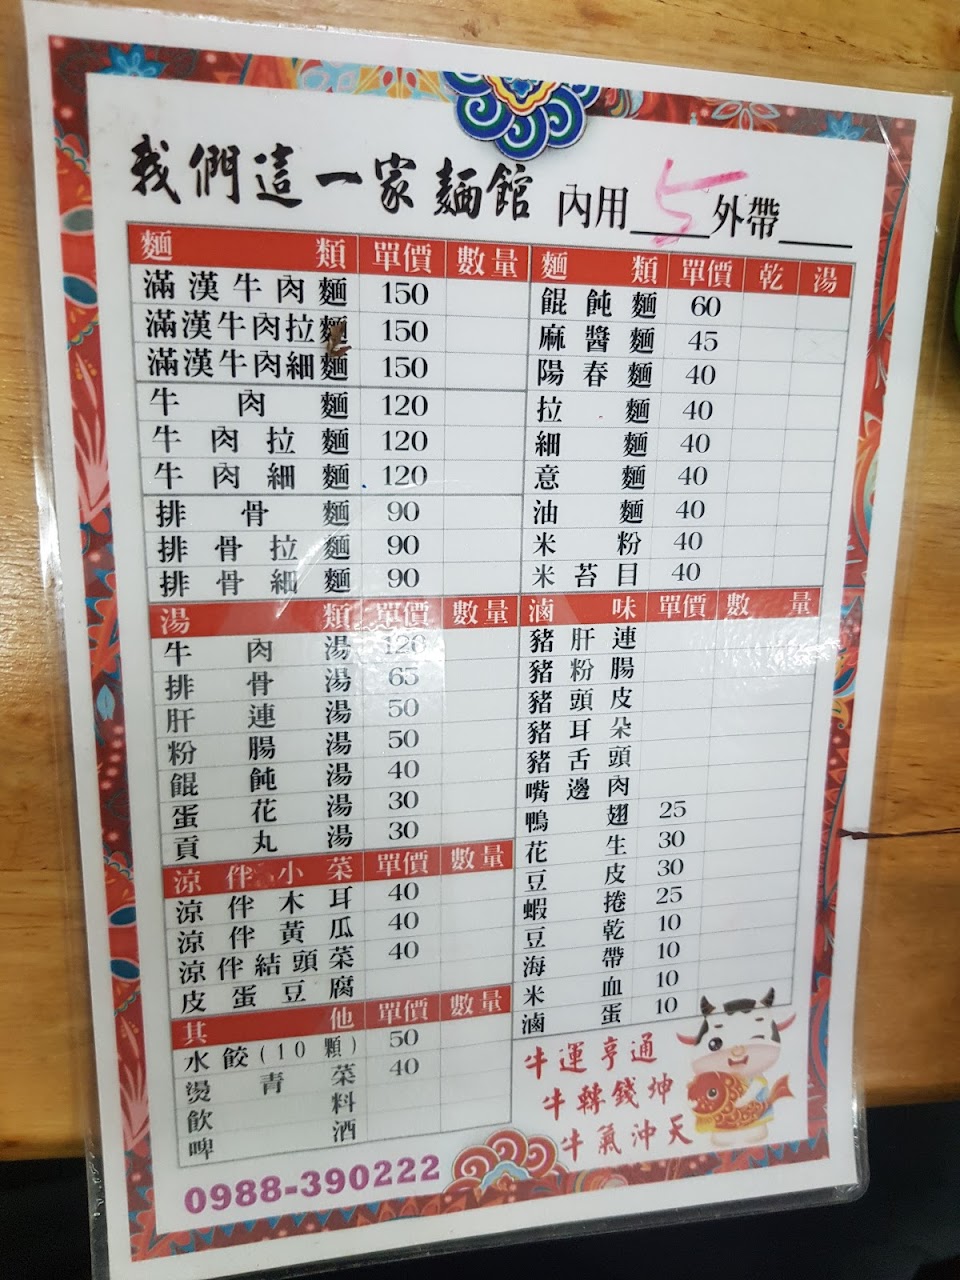 我們這一家麵館 內用 5 外帶
麵類 單價 數量
滿漢牛肉麵 150
滿漢牛肉拉麵 150
滿漢牛肉細麵 150
牛肉麵 120
牛肉拉麵 120
牛肉細麵 120
排骨麵 90
排骨拉麵 90
排骨細麵 90
湯類 單價 數量
牛肉湯 120
排骨湯 65
肝連湯 50
粉腸湯 50
餛飩湯 40
蛋花湯 30
貢丸湯 30
涼伴小菜 單價 數量
涼伴木耳 40
涼伴黃瓜 40
涼伴結頭菜 40
皮蛋豆腐
其他 單價 數量
水餃(10顆) 50
燙青菜 40
飲料
啤酒
0988-390222
麵類 單價 乾 湯
餛飩麵 60
麻醬麵 45
陽春麵 40
拉麵 40
細麵 40
意麵 40
油麵 40
米粉 40
米苔目 40
滷味 單價 數量
豬肝連
豬粉腸
豬頭皮
豬耳朵
豬舌頭
嘴邊肉
鴨翅 25
花生 30
豆皮 30
蝦捲 25
豆乾 10
海帶 10
米血 10
滷蛋 10
牛運亨通
牛轉錢坤
牛氣沖天